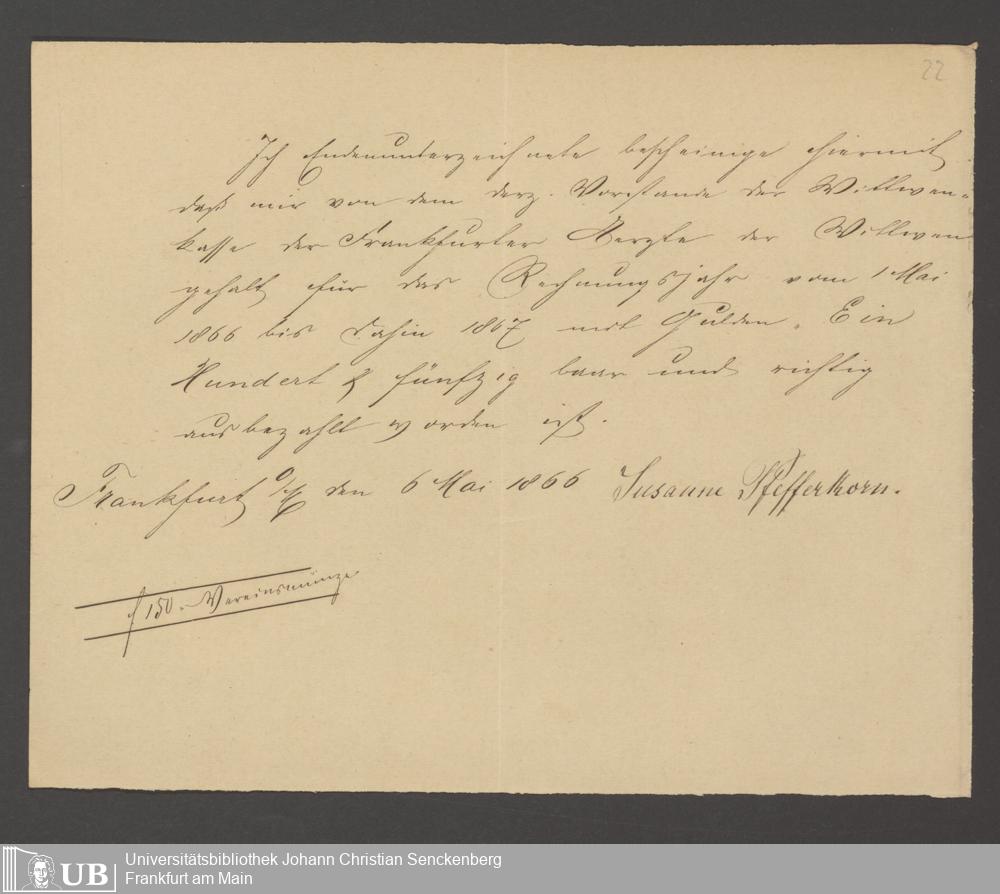 22
Ich Endesunterzeichnete bescheinige hiermit
daß mir von dem derz. Vorstande der Wittwen-
kasse der Frankfurter Aerzte der Wittwen
gehalt für das Rechnungsjahr vom 1 Mai
1866 bis dahin 1867 mit Gulden Ein
Hundert & fünfzig baar und richtig
ausbezahlt worden ist.
Frankfurt a/M den 6 Mai 1866 Susanne Pfefferkorn.
f 150.- Vereinsmünze
UB Universitätsbibliothek Johann Christian Senckenberg
Frankfurt am Main